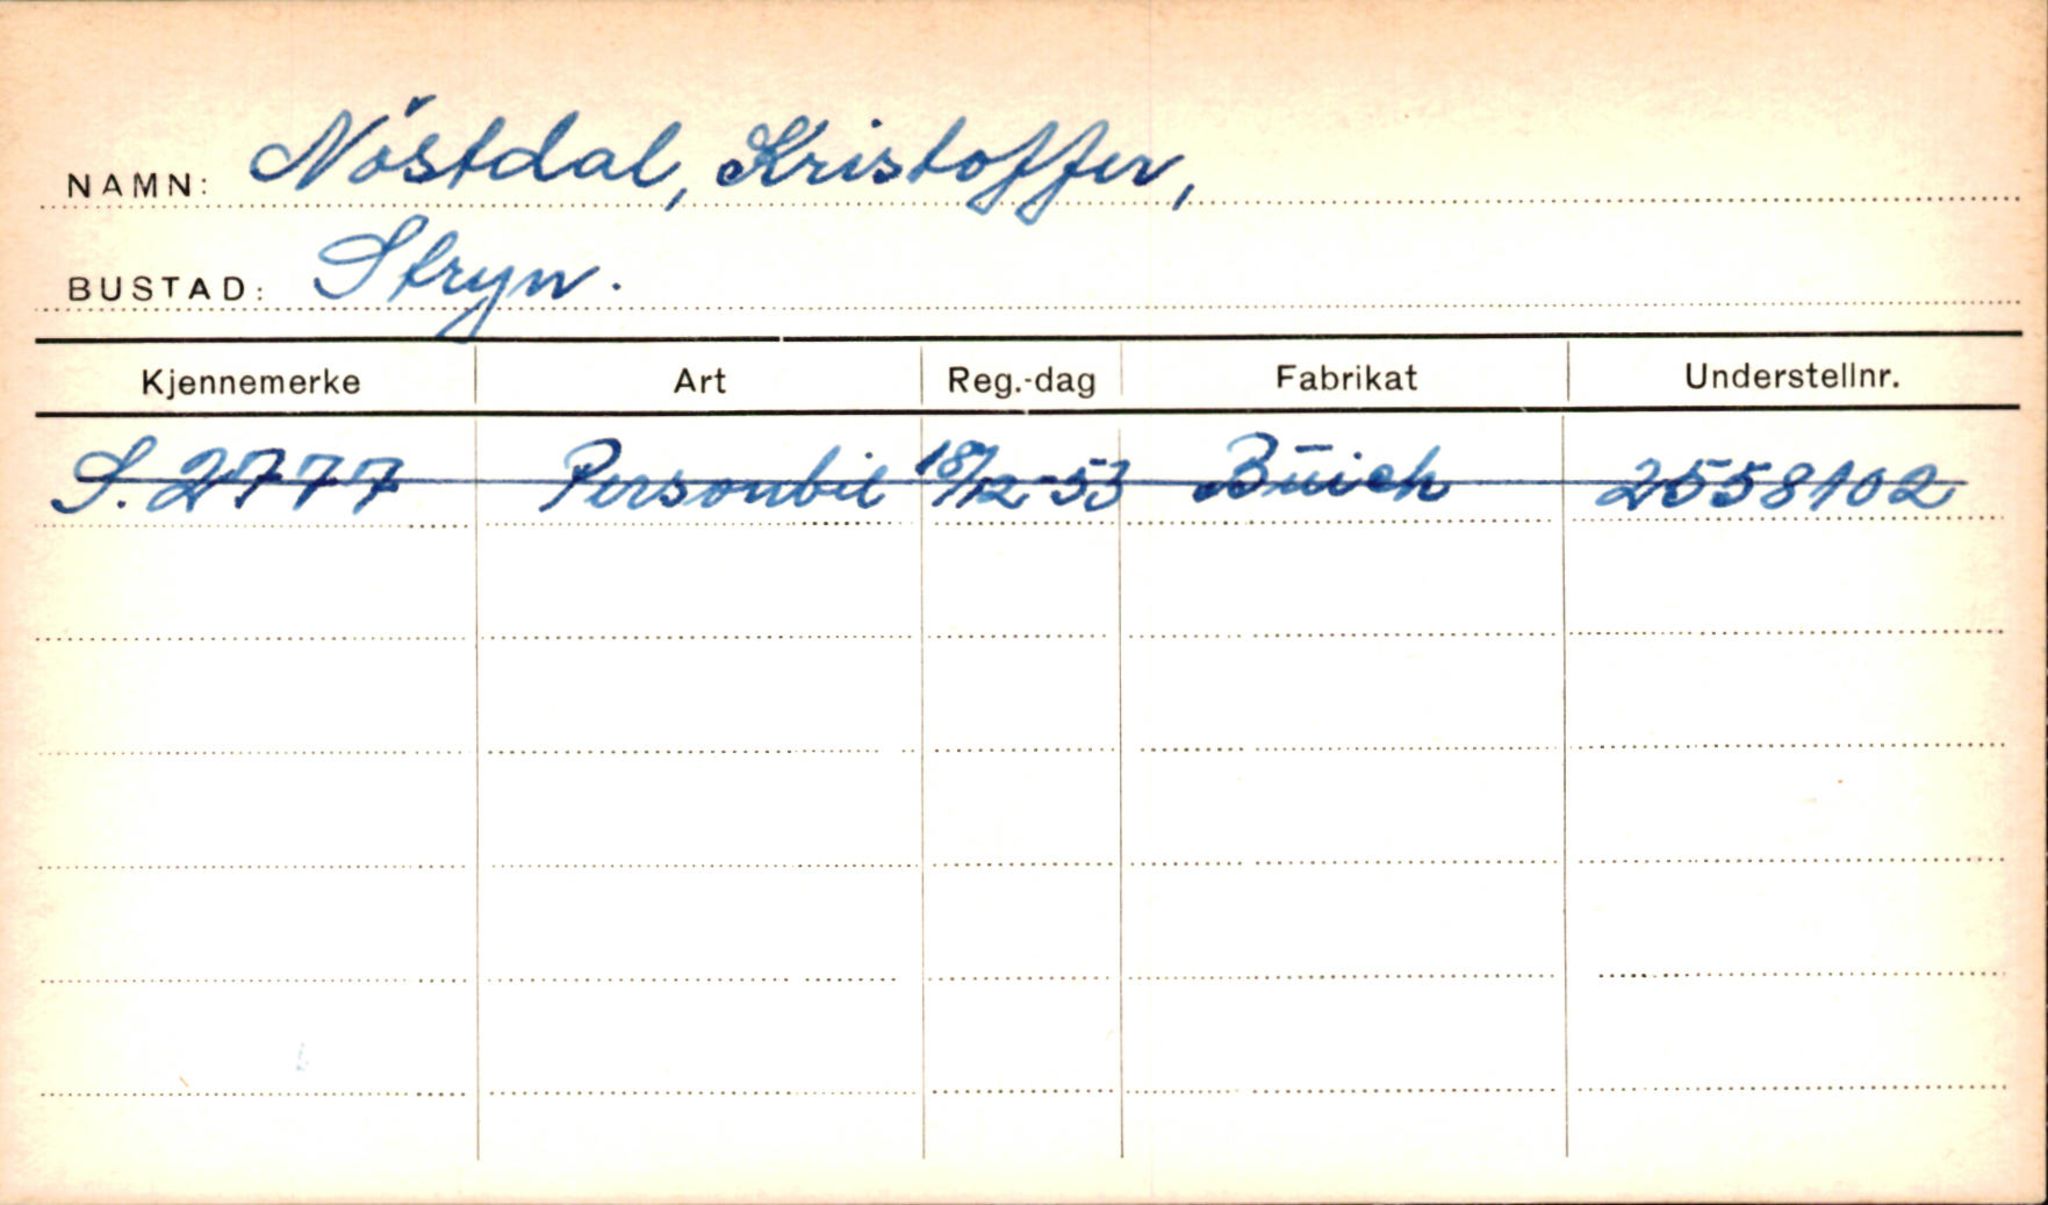 NAMN: Nóstdal, Kristoffer,
BUSTAD: Stryn.
Kjennemerke Art Reg.-dag Fabrikat Understellnr.
S. 2777 Personbil 18/12-53 Būick 2558102